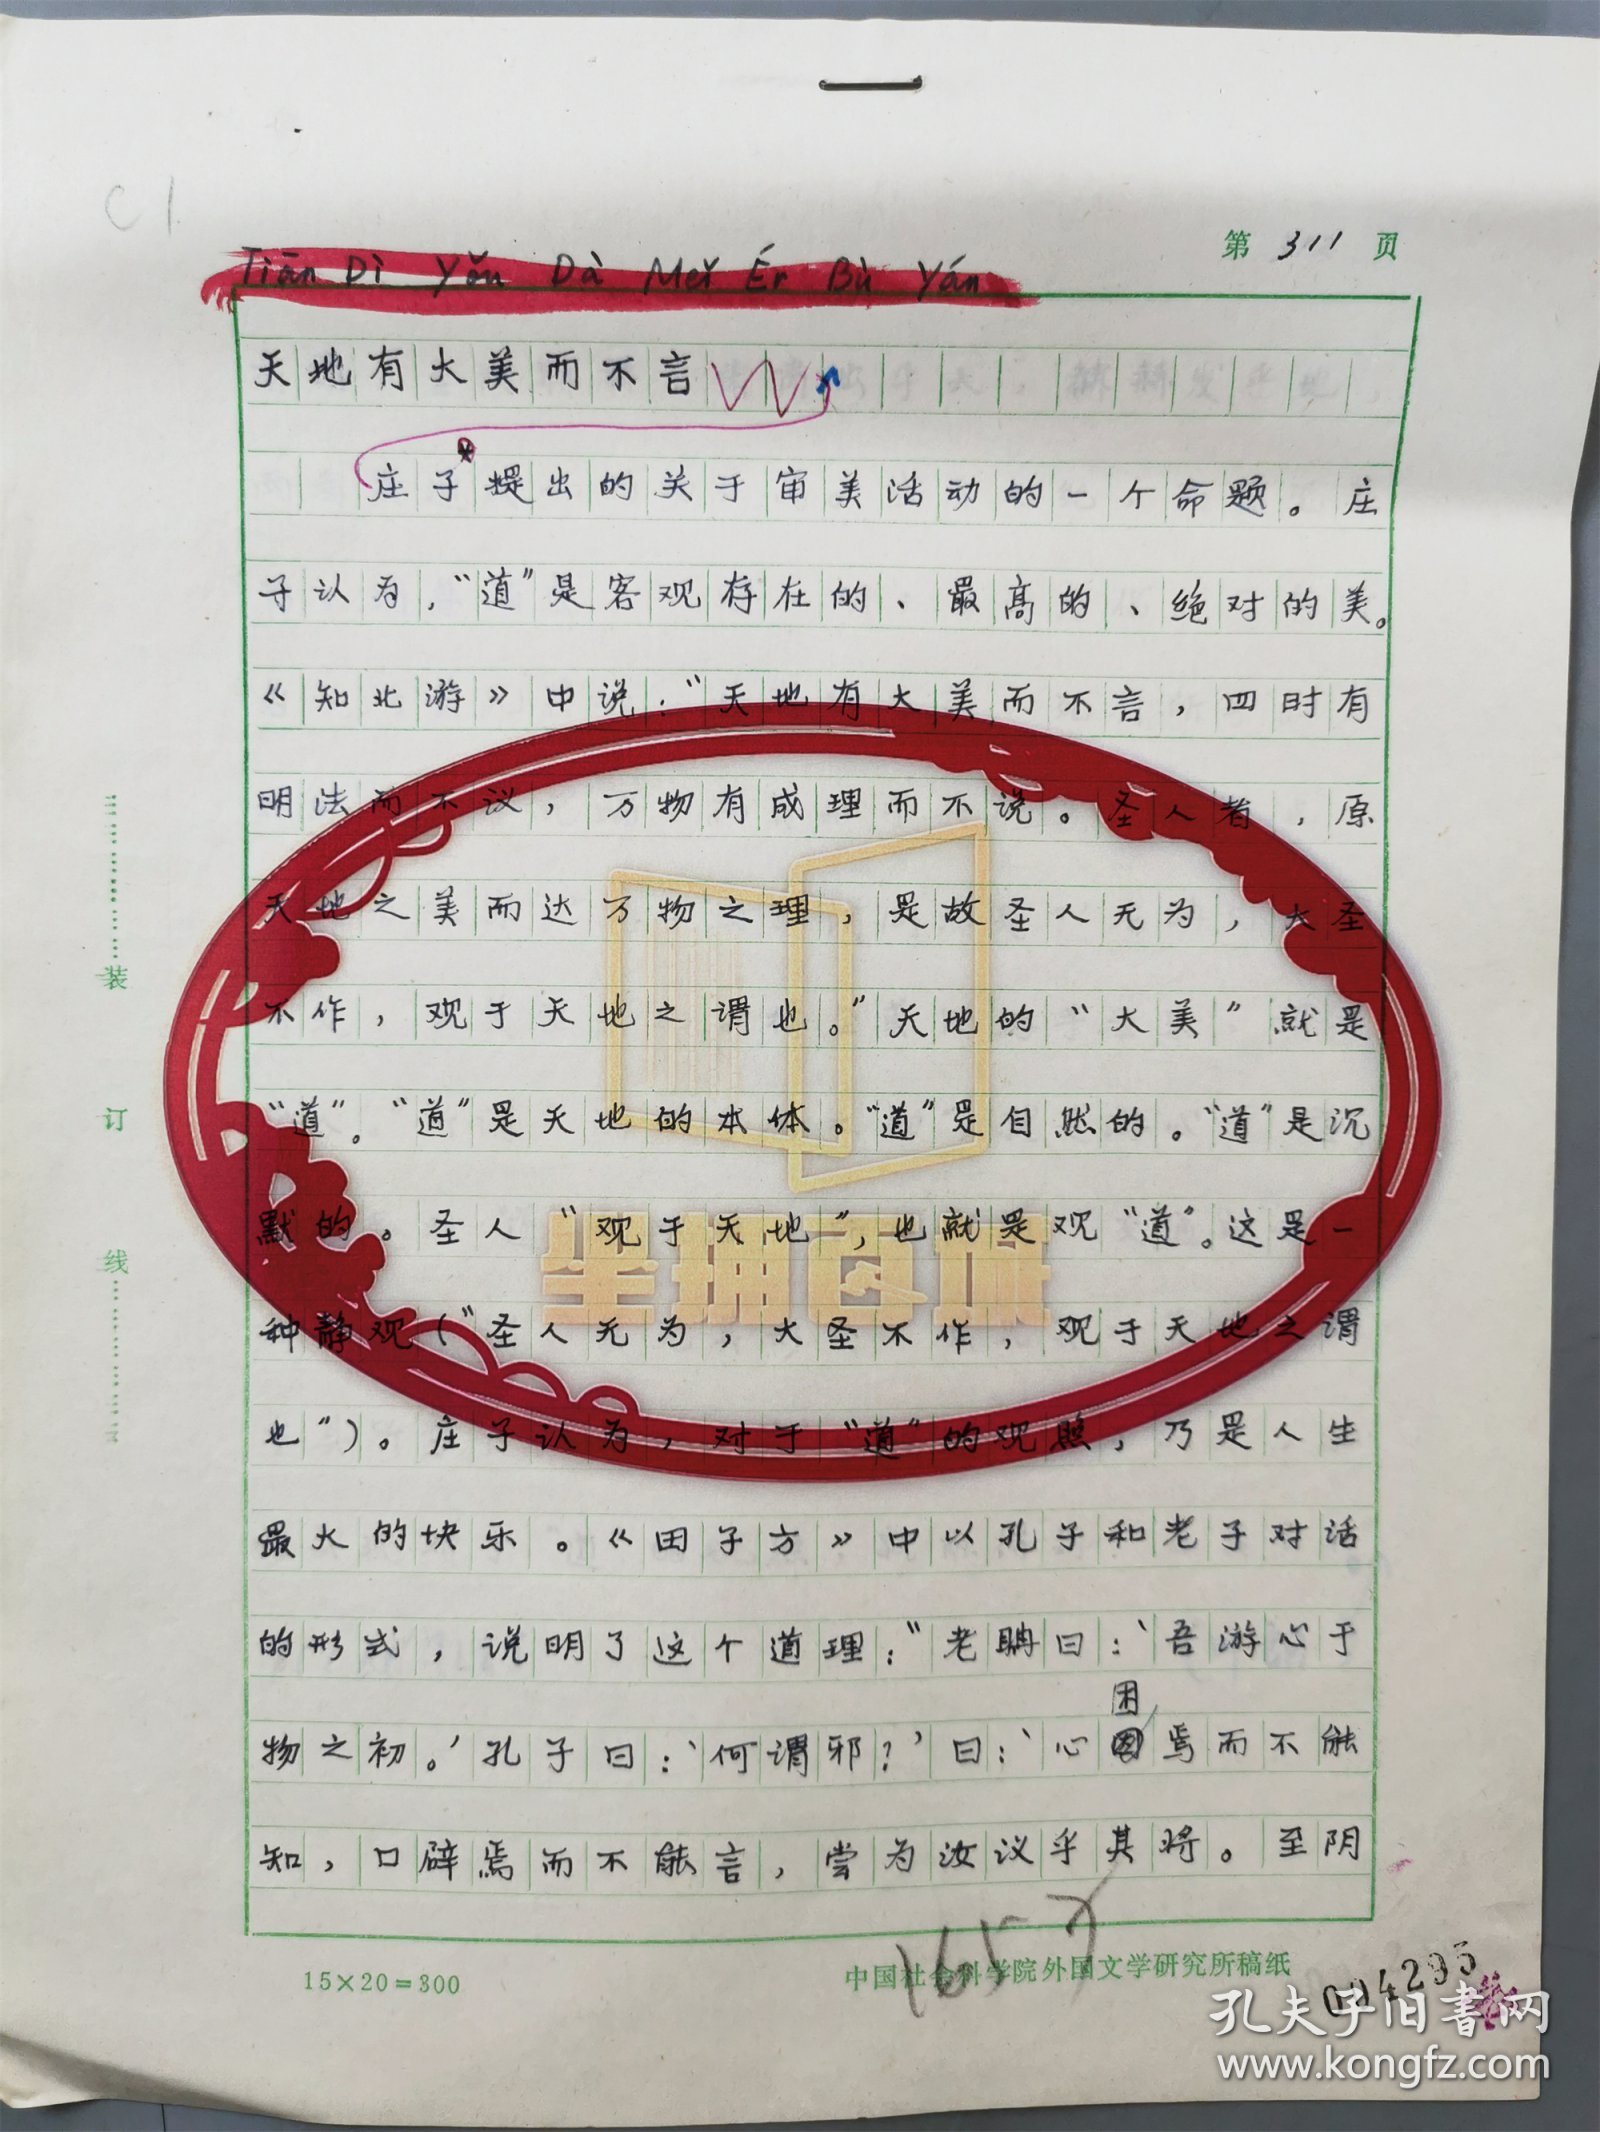 C1
第311页
Tiān Dì Yǒu Dà Měi Ér Bù Yán
天地有大美而不言
庄子提出的关于审美活动的一个命题。庄
子认为，“道”是客观存在的、最高的、绝对的美。
《知北游》中说：“天地有大美而不言，四时有
明法而不议，万物有成理而不说。圣人者，原
天地之美而达万物之理，是故圣人无为，大圣
不作，观于天地之谓也。”天地的“大美”就是
“道”。“道”是天地的本体。“道”是自然的。“道”是沉
默的。圣人“观于天地”，也就是观“道”。这是一
种静观（“圣人无为，大圣不作，观于天地之谓
也”）。庄子认为，对于“道”的观照，乃是人生
最大的快乐。《田子方》中以孔子和老子对话
的形式，说明了这个道理：“老聃曰：‘吾游心于
物之初。’孔子曰：‘何谓邪？’曰：‘心困焉而不能
知，口辟焉而不能言，尝为汝议乎其将。至阴
装
订
线
15×20=300
中国社会科学院外国文学研究所稿纸
1657
004295
孔夫子旧书网
www.kongfz.com